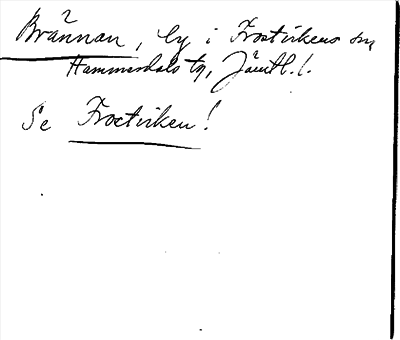 Brännan, by i Frostvikens sn
Hammerdals tg, Jämtl. l.
Se Frostviken!